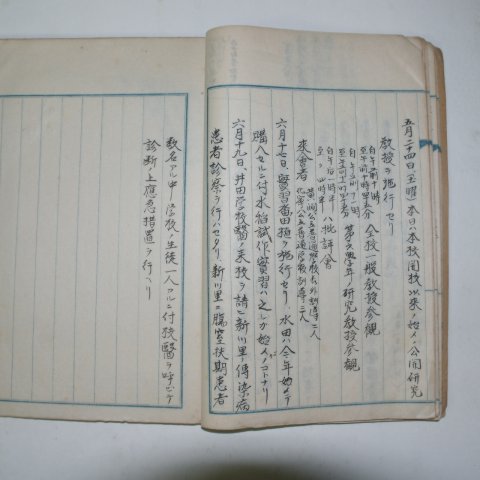 五月二十四日(土曜)本日ハ本校開校以来ノ始メノ公開研究
教授ヲ施行セリ
自午前十時
至午前十時四十五分 全校一般教授参観
自午前十一時
至午前十一時四十五分 第六學年ノ研究教授参観
自午後一時半
至〃四時半 ハ批評會
来會者
六月十七日、實習畓田植ヲ施行セリ、水田ハ今年始メテ
購入セルニ付水稲試作實習ハ之レガ始メノコトナリ
六月十九日、井田学校醫ノ来校ヲ請ヒ新川里ノ傳染病
患者診察ヲ行ハセタリ、新川里ニ腸窒扶期患者
数名アル中ノ学校ノ生徒一人アルニ付校醫ヲ呼ビテ
診断ノ上應急措置ヲ行ヘリ